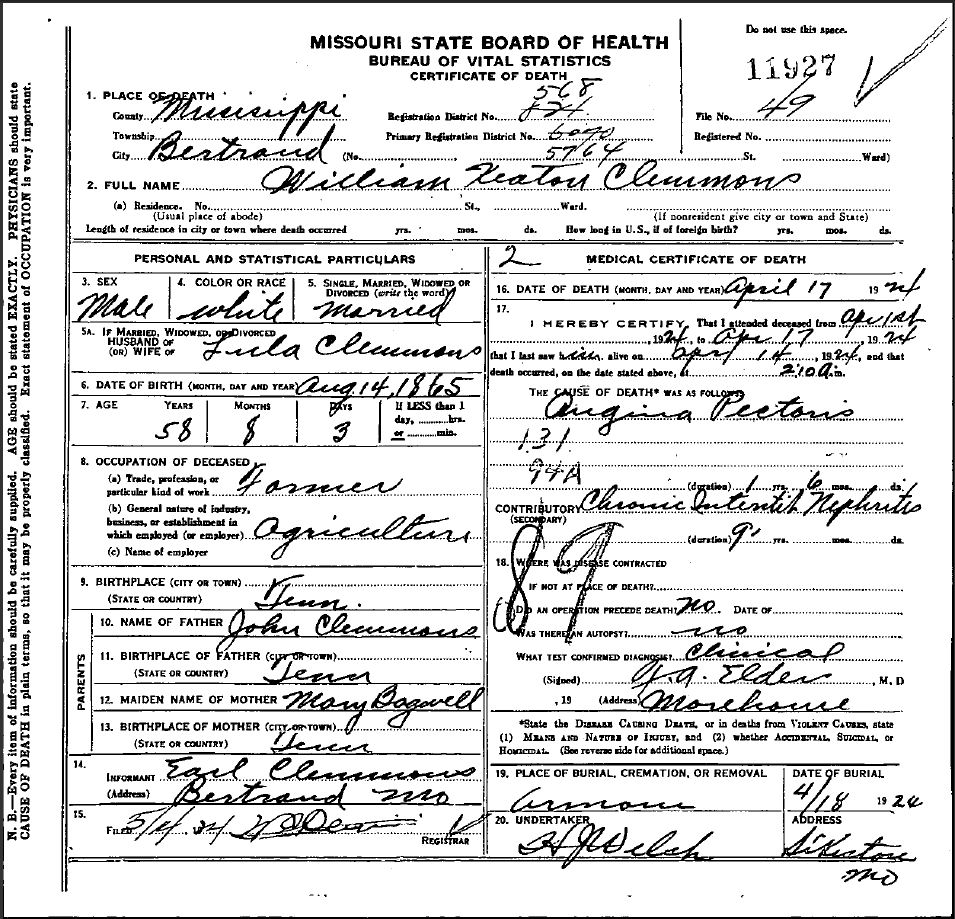 Do not use this space.
MISSOURI STATE BOARD OF HEALTH
BUREAU OF VITAL STATISTICS
CERTIFICATE OF DEATH
11927
1. PLACE OF DEATH
568
County Mississippi Registration District No. 821 File No. 49
Township Primary Registration District No. 6090 Registered No.
City Bertrand (No. 5764 St. Ward)
2. FULL NAME William Keaton Clemmons
(a) Residence. No. St., Ward.
(Usual place of abode) (If nonresident give city or town and State)
Length of residence in city or town where death occurred yrs. mos. ds. How long in U.S., if of foreign birth? yrs. mos. ds.
PERSONAL AND STATISTICAL PARTICULARS
3. SEX 4. COLOR OR RACE 5. SINGLE, MARRIED, WIDOWED OR
DIVORCED (write the word)
Male white married
5A. IF MARRIED, WIDOWED, OR DIVORCED
HUSBAND OF
(OR) WIFE OF Lula Clemmons
6. DATE OF BIRTH (MONTH, DAY AND YEAR) Aug 14, 1865
7. AGE YEARS MONTHS DAYS If LESS than 1
day, hrs.
or min.
58 8 3
8. OCCUPATION OF DECEASED
(a) Trade, profession, or
particular kind of work Farmer
(b) General nature of industry,
business, or establishment in
which employed (or employer) Agriculture
(c) Name of employer
9. BIRTHPLACE (CITY OR TOWN)
(STATE OR COUNTRY) Tenn.
PARENTS
10. NAME OF FATHER John Clemmons
11. BIRTHPLACE OF FATHER (CITY OR TOWN)
(STATE OR COUNTRY) Tenn
12. MAIDEN NAME OF MOTHER Mary Bagwell
13. BIRTHPLACE OF MOTHER (CITY OR TOWN)
(STATE OR COUNTRY) Tenn
14.
INFORMANT Earl Clemmons
(Address) Bertrand Mo
15.
FILED 5/4 24
REGISTRAR
2 MEDICAL CERTIFICATE OF DEATH
16. DATE OF DEATH (MONTH, DAY AND YEAR) April 17 1924
17.
I HEREBY CERTIFY, That I attended deceased from Apr 1st
, 1924, to Apr 17, 1924
that I last saw him alive on Apr 14, 1924, and that
death occurred, on the date stated above, at 2:10 a.m.
THE CAUSE OF DEATH* WAS AS FOLLOWS:
Angina Pectoris
131
94A
(duration) 1 yrs. 6 mos. ds.
CONTRIBUTORY Chronic Interstit Nephritis
(SECONDARY)
(duration) 9 yrs. mos. ds.
89
18. WHERE WAS DISEASE CONTRACTED
IF NOT AT PLACE OF DEATH?
DID AN OPERATION PRECEDE DEATH? no DATE OF
WAS THERE AN AUTOPSY? no
WHAT TEST CONFIRMED DIAGNOSIS? Clinical
(Signed) J.A. Elder, M. D
, 19 (Address) Morehouse
*State the DISEASE CAUSING DEATH, or in deaths from VIOLENT CAUSES, state
(1) MEANS AND NATURE OF INJURY, and (2) whether ACCIDENTAL, SUICIDAL, or
HOMICIDAL. (See reverse side for additional space.)
19. PLACE OF BURIAL, CREMATION, OR REMOVAL DATE OF BURIAL
Armour 4/18 1924
20. UNDERTAKER ADDRESS
H J Welch Sikeston
Mo
N. B.—Every item of information should be carefully supplied. AGE should be stated EXACTLY. PHYSICIANS should state
CAUSE OF DEATH in plain terms, so that it may be properly classified. Exact statement of OCCUPATION is very important.